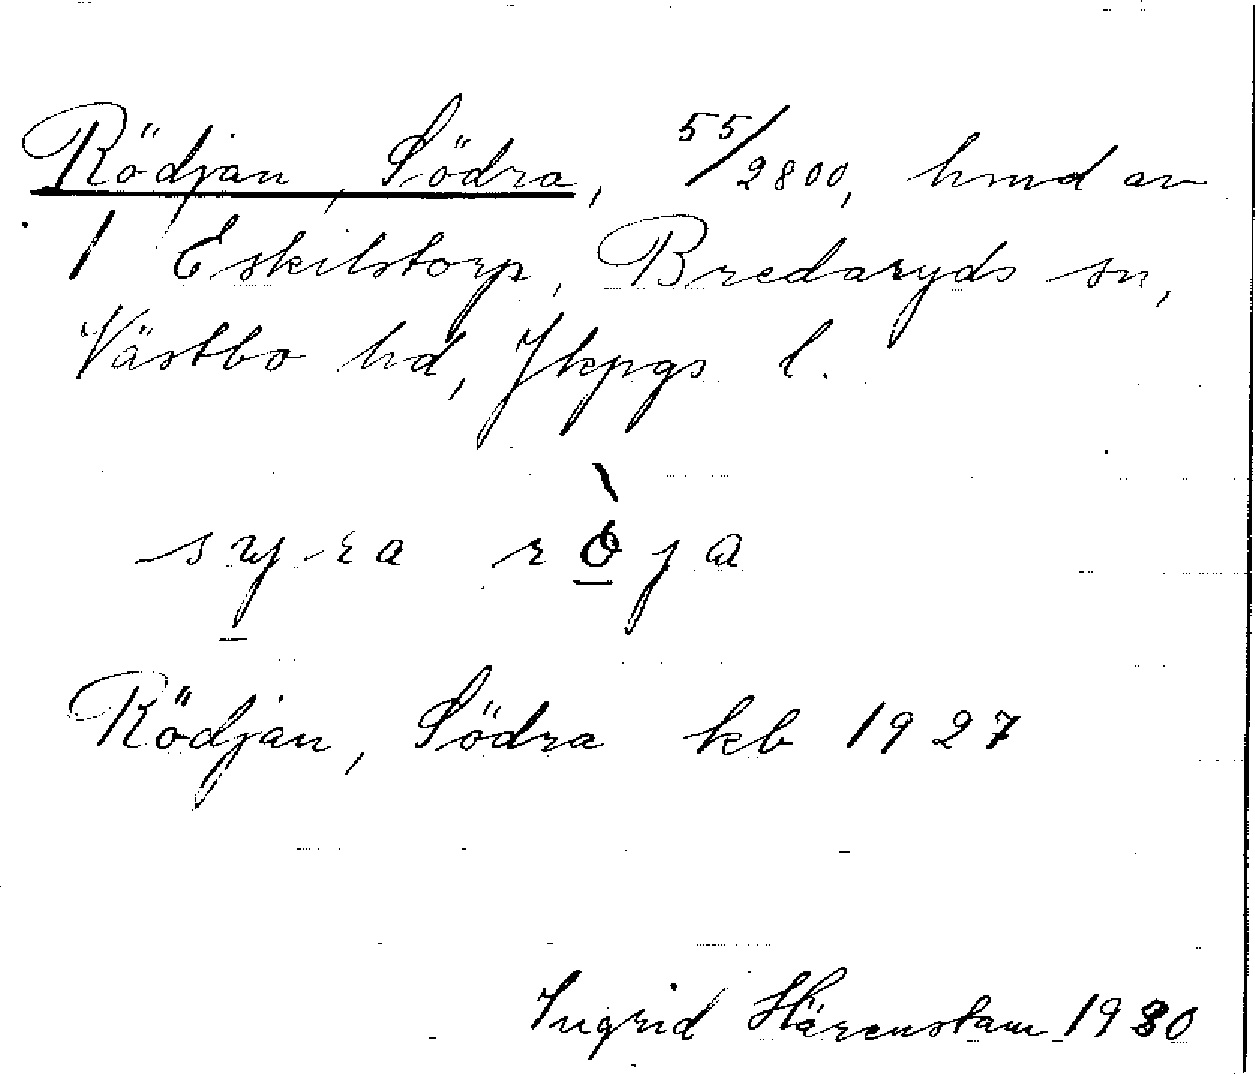 Rödjan, Södra, 55/2800, hmd av
1 Eskilstorp, Bredaryds sn,
Västbo hd, Jkpgs l.
syra röja
Rödjan, Södra kb 1927
Ingrid Härenstam 1930